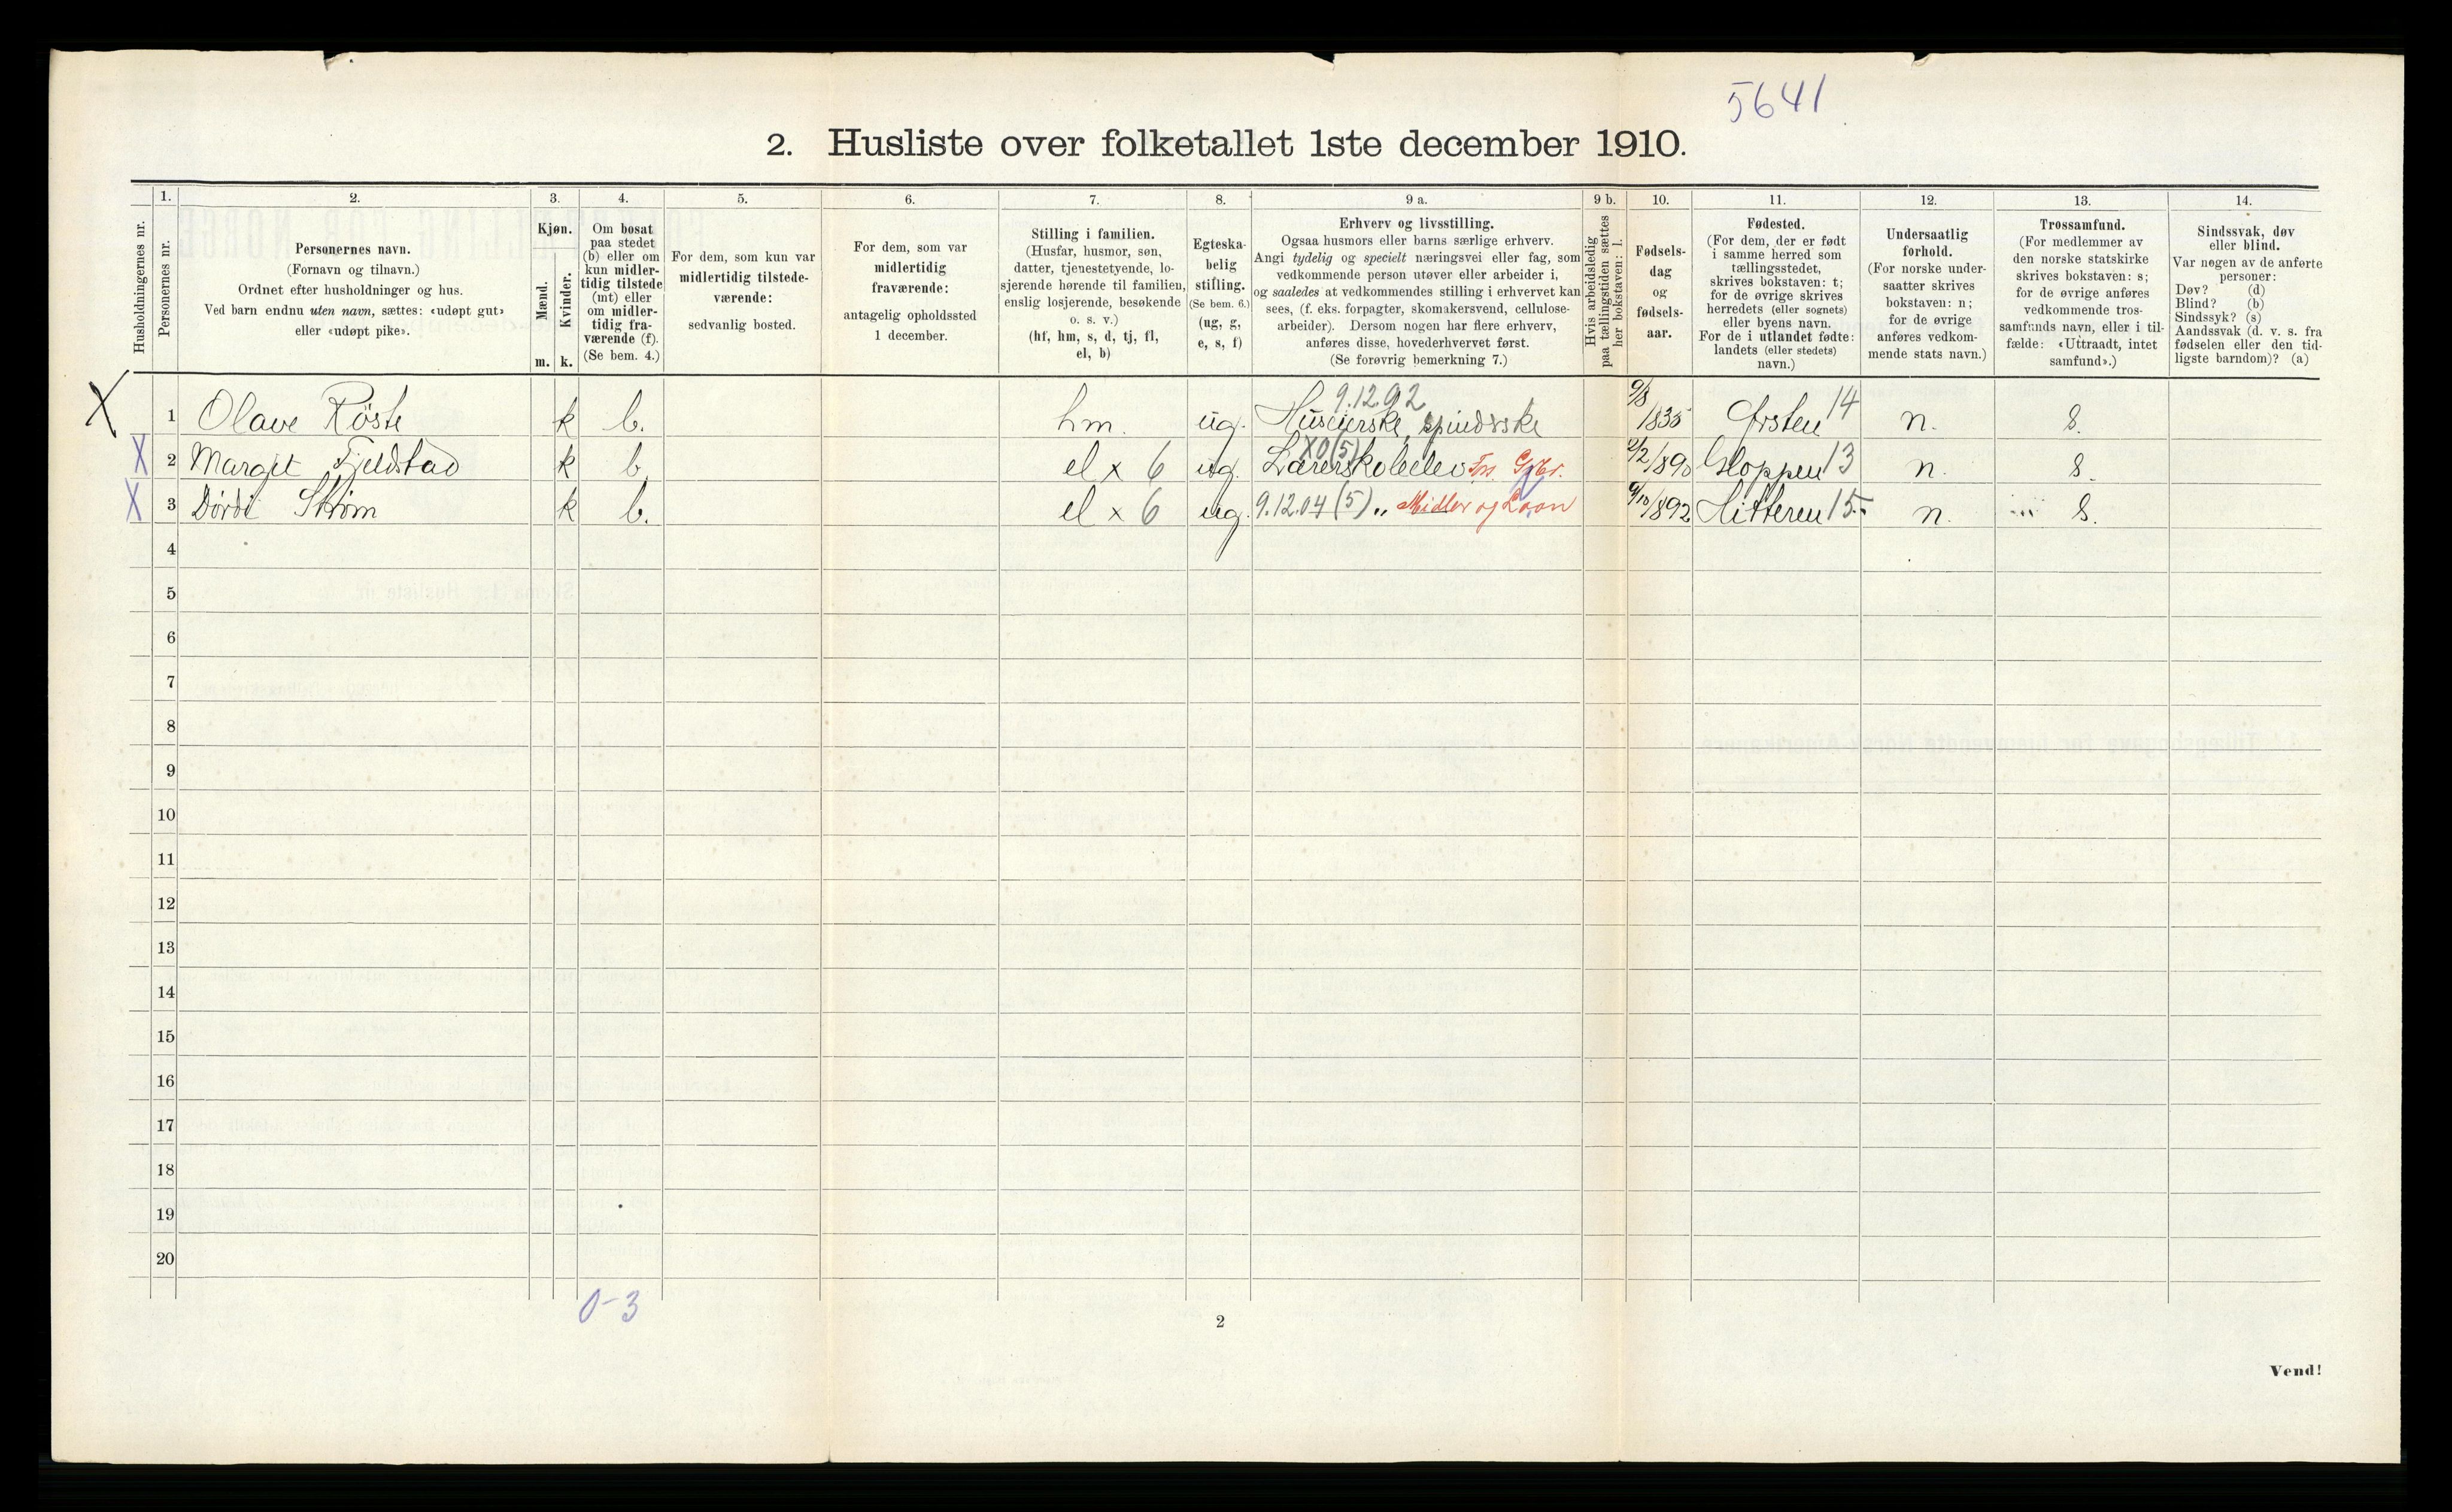 5641
2. Husliste over folketallet 1ste december 1910.
Husholdningernes nr.
1.
Personernes nr.
2.
Personernes navn.
(Fornavn og tilnavn.)
Ordnet efter husholdninger og hus.
Ved barn endnu uten navn, sættes: «udøpt gut»
eller «udøpt pike».
3.
Kjøn.
Mænd.
Kvinder.
m. k.
4.
Om bosat
paa stedet
(b) eller om
kun midler-
tidig tilstede
(mt) eller
om midler-
tidig fra-
værende (f).
(Se bem. 4.)
5.
For dem, som kun var
midlertidig tilstede-
værende:
sedvanlig bosted.
6.
For dem, som var
midlertidig
fraværende:
antagelig opholdssted
1 december.
7.
Stilling i familien.
(Husfar, husmor, søn,
datter, tjenestetyende, lo-
sjerende hørende til familien,
enslig losjerende, besøkende
o. s. v.)
(hf, hm, s, d, tj, fl,
el, b)
8.
Egteska-
belig
stilling.
(Se bem. 6.)
(ug, g,
e, s, f)
9 a.
Erhverv og livsstilling.
Ogsaa husmors eller barns særlige erhverv.
Angi tydelig og specielt næringsvei eller fag, som
vedkommende person utøver eller arbeider i,
og saaledes at vedkommendes stilling i erhvervet kan
sees, (f. eks. forpagter, skomakersvend, cellulose-
arbeider). Dersom nogen har flere erhverv,
anføres disse, hovederhvervet først.
(Se forøvrig bemerkning 7.)
9 b.
Hvis arbeidsledig
paa tællingstiden sættes
her bokstaven: l.
10.
Fødsels-
dag
og
fødsels-
aar.
11.
Fødested.
(For dem, der er født
i samme herred som
tællingsstedet,
skrives bokstaven: t;
for de øvrige skrives
herredets (eller sognets)
eller byens navn.
For de i utlandet fødte:
landets (eller stedets)
navn.)
12.
Undersaatlig
forhold.
(For norske under-
saatter skrives
bokstaven: n;
for de øvrige
anføres vedkom-
mende stats navn.)
13.
Trossamfund.
(For medlemmer av
den norske statskirke
skrives bokstaven: s;
for de øvrige anføres
vedkommende tros-
samfunds navn, eller i til-
fælde: «Uttraadt, intet
samfund».)
14.
Sindssvak, døv
eller blind.
Var nogen av de anførte
personer:
Døv? (d)
Blind? (b)
Sindssyk? (s)
Aandssvak (d. v. s. fra
fødselen eller den tid-
ligste barndom)? (a)
9.12.92
X 1 Olave Röste k b. hm. ug. Huseierske, spinderske 9/8 1835 Örsten 14 n. S.
X0(5)
X 2 Margit Fjeldstad k b. el x 6 ug. Lærerskoleelev 2/2/890 Gloppen 13 n. S.
X 3 Dördi Ström k b. el x 6 ug. 9.12.04 (5) „ Midler og Laan 9/10/892 Hitteren 15 n. S.
4
5
6
7
8
9
10
11
12
13
14
15
16
17
18
19
20
0-3
2
Vend!